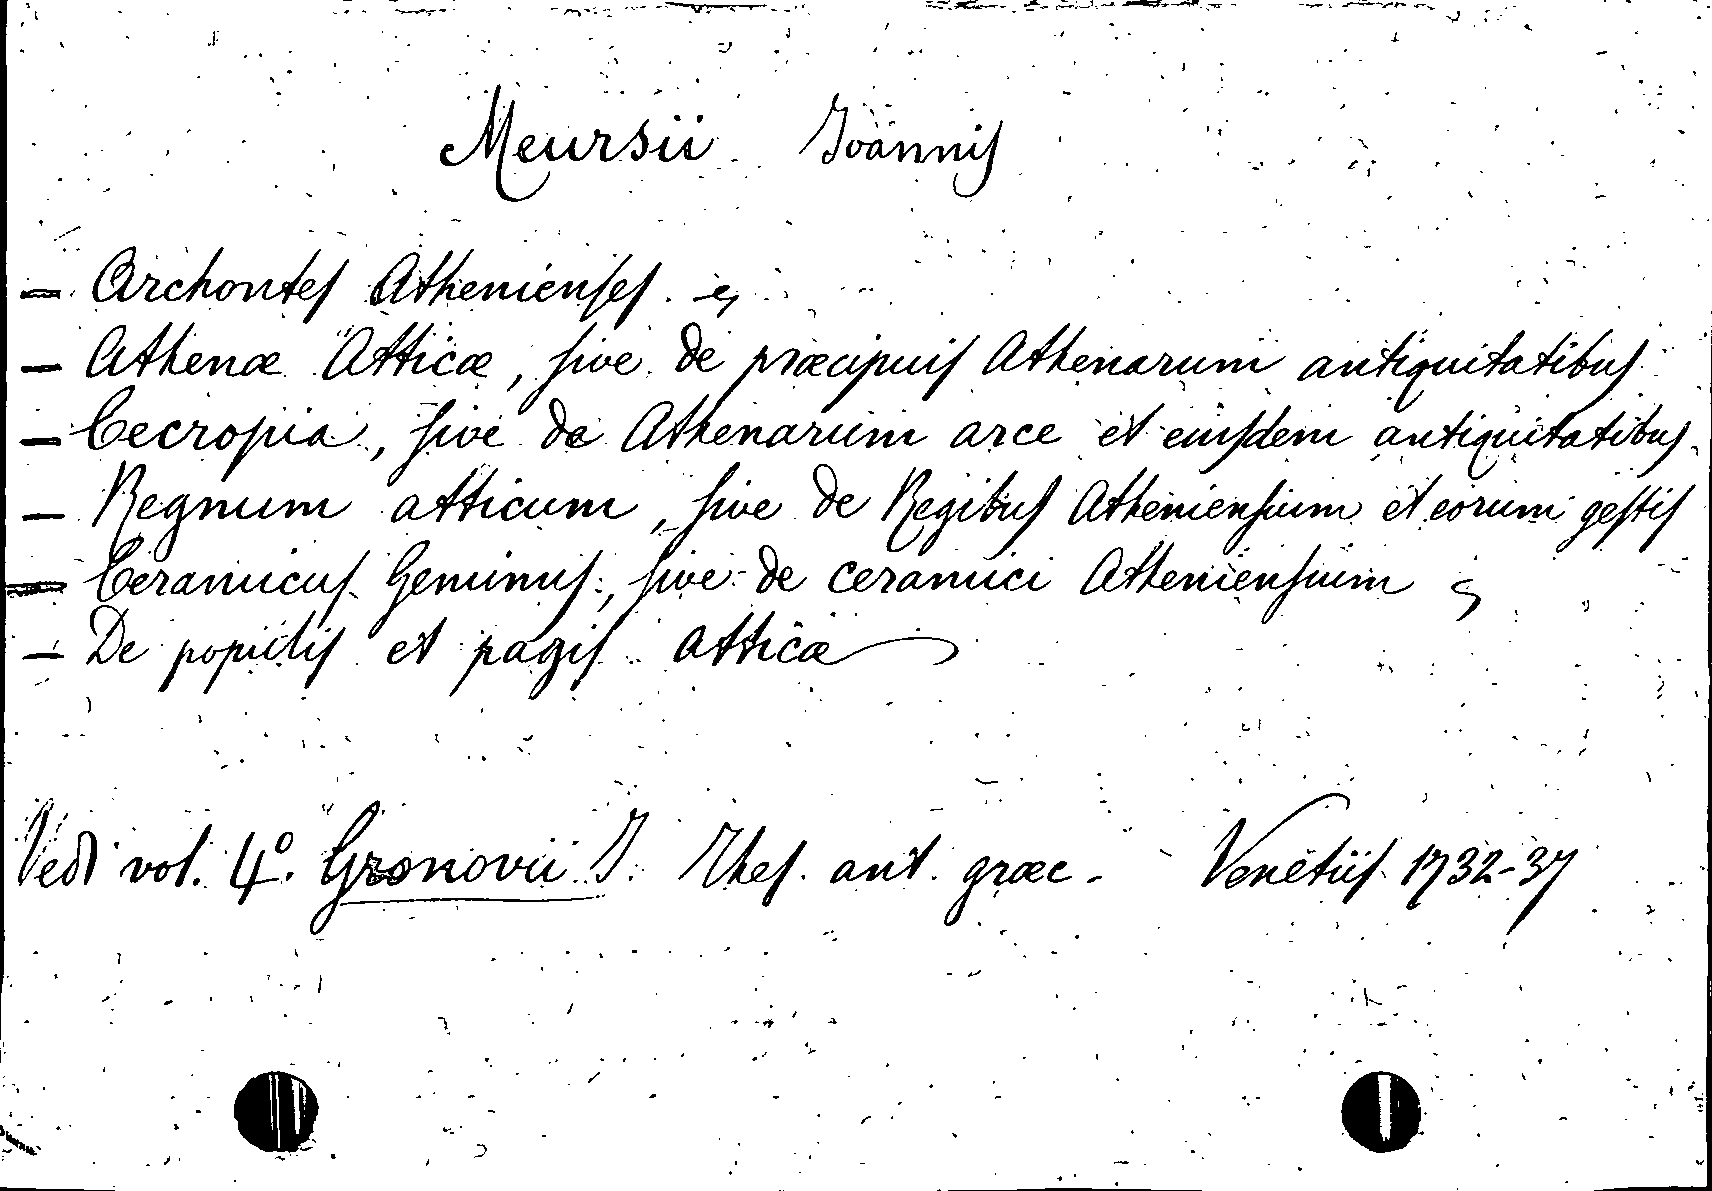 Meursii Joannis
- Archontes Athenienses.
- Athenæ Atticæ, sive de præcipuis Athenarum antiquitatibus
- Cecropia, sive de Athenarum arce et eiusdem antiquitatibus.
- Regnum atticum, sive de Regibus Atheniensium et eorum gestis
- Ceramicus Geminus, sive de ceramici Atheniensium
- De populis et pagis atticæ
Vedi vol. 4º. Gronovii J. Thes. ant. græc. Venetiis 1732-37